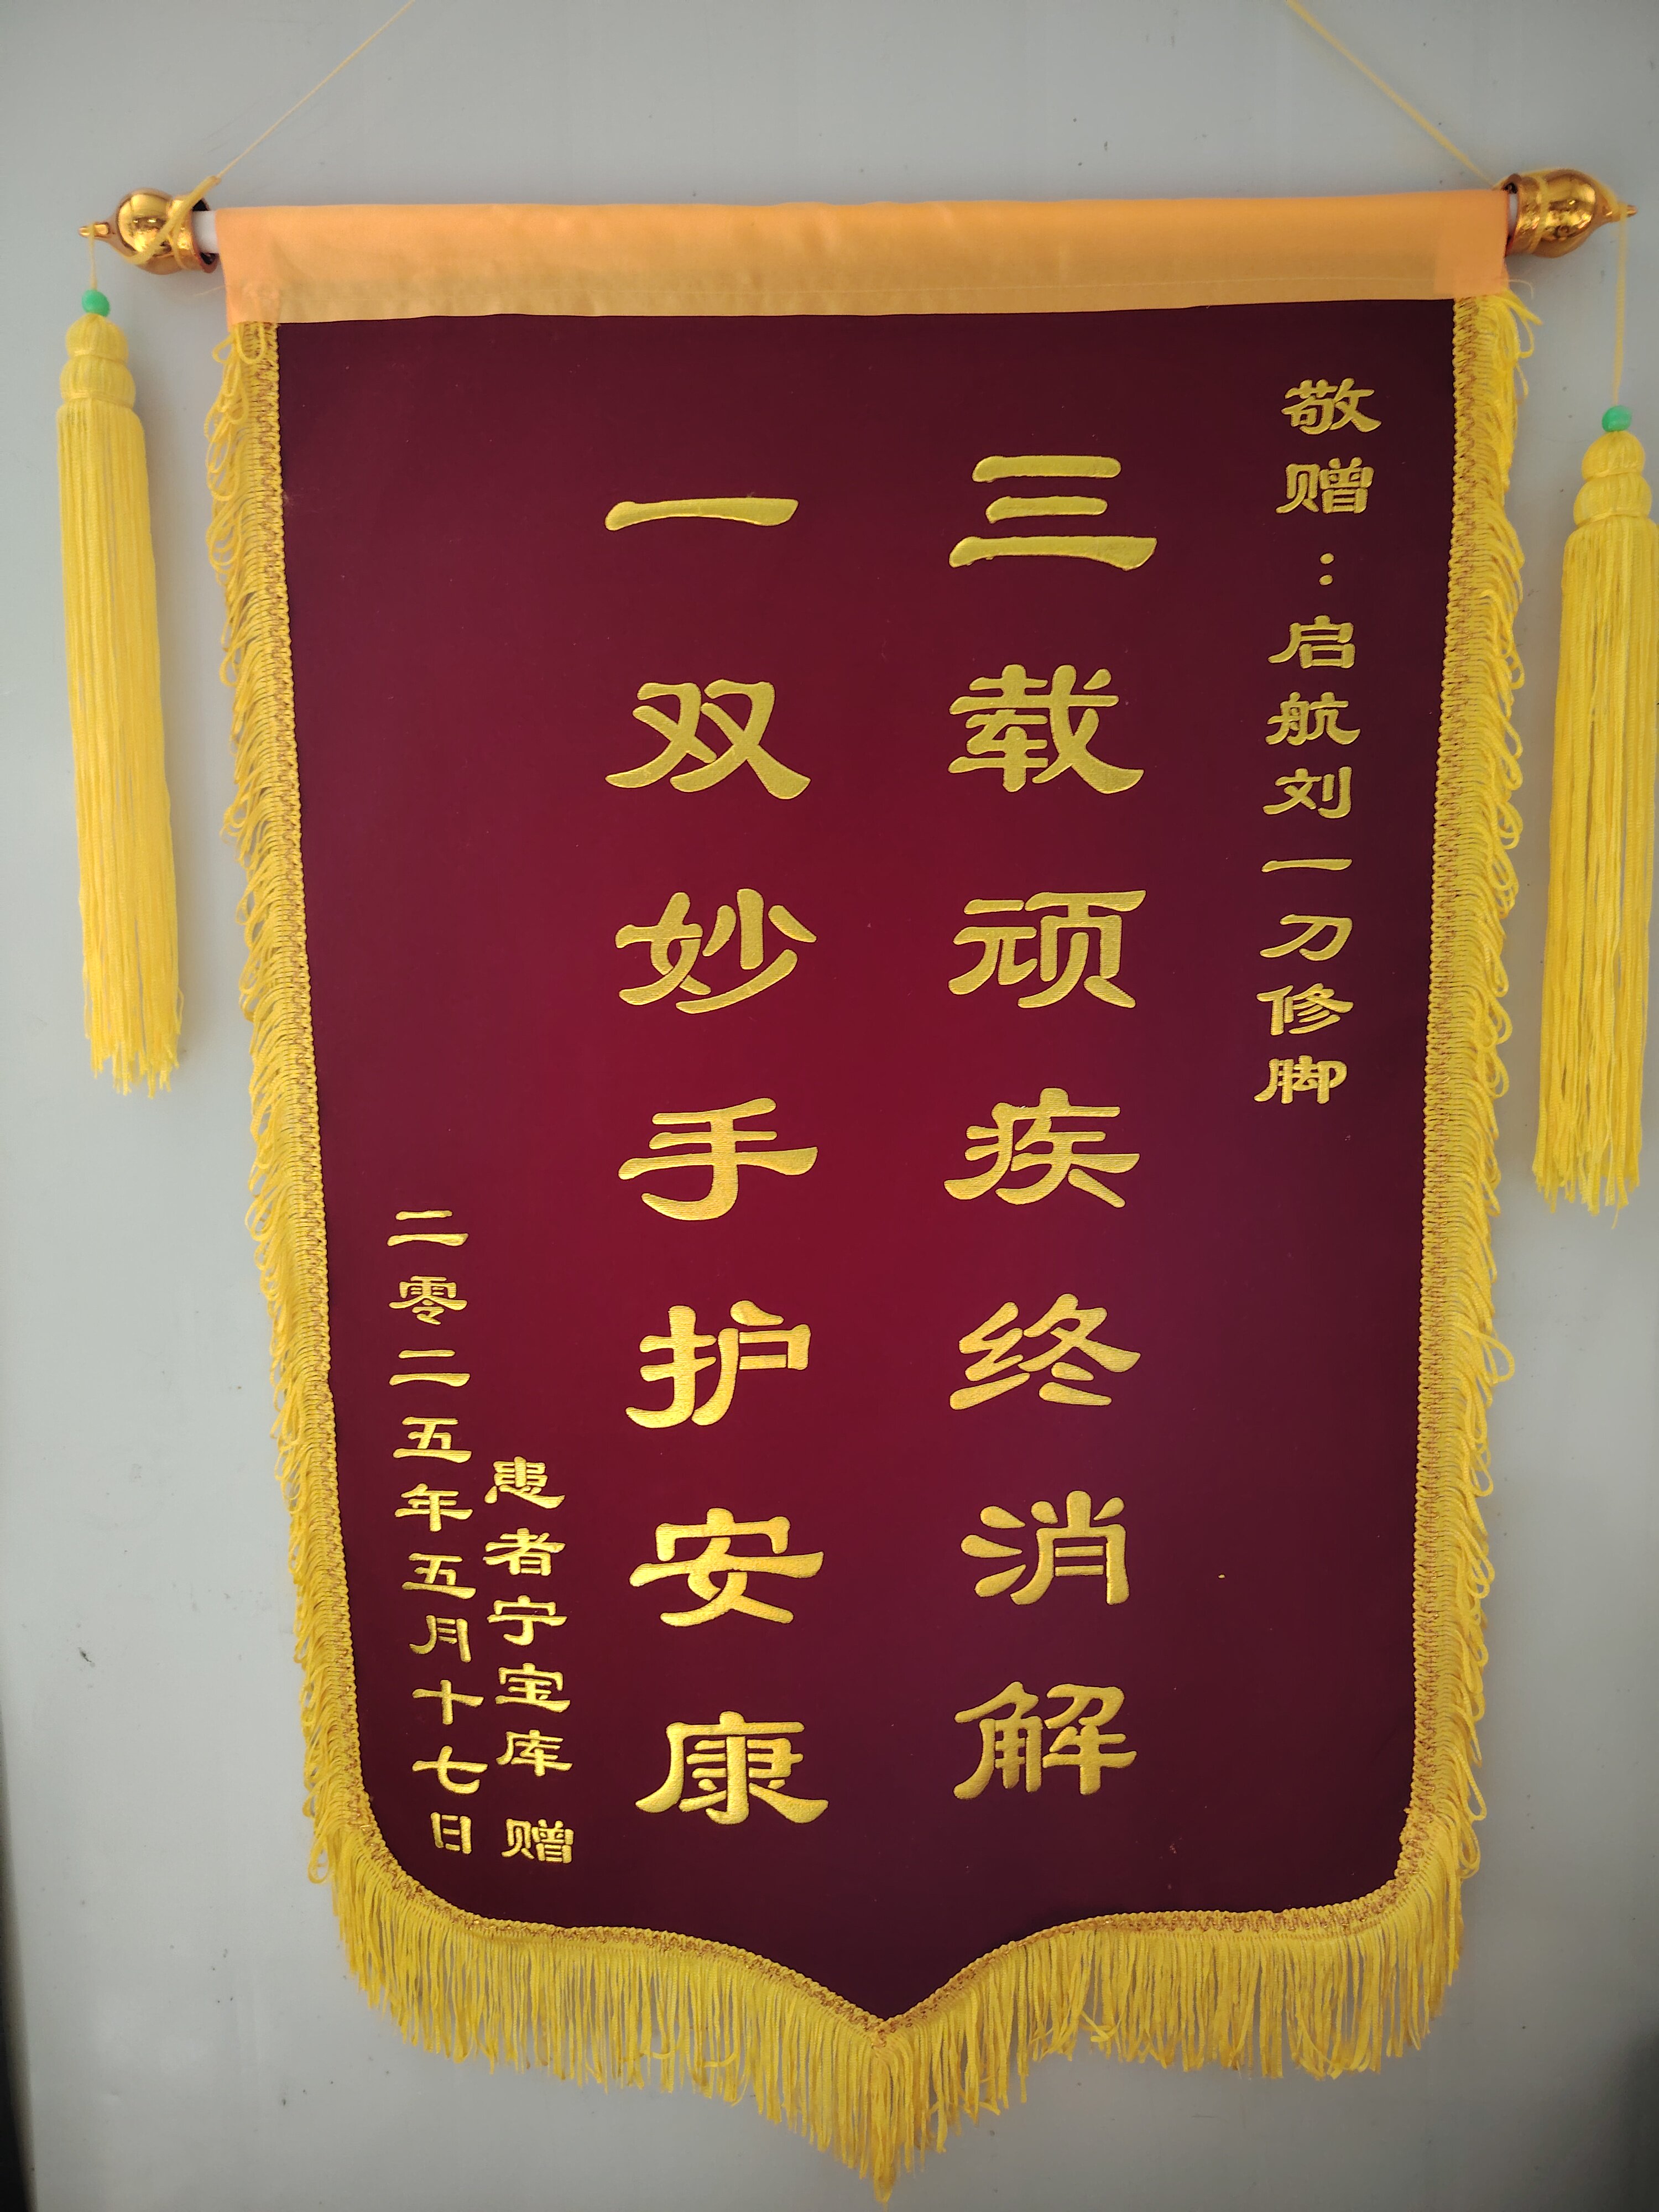 敬赠：启航刘一刀修脚
三载顽疾终消解
一双妙手护安康
患者宁宝库 赠
二零二五年五月十七日